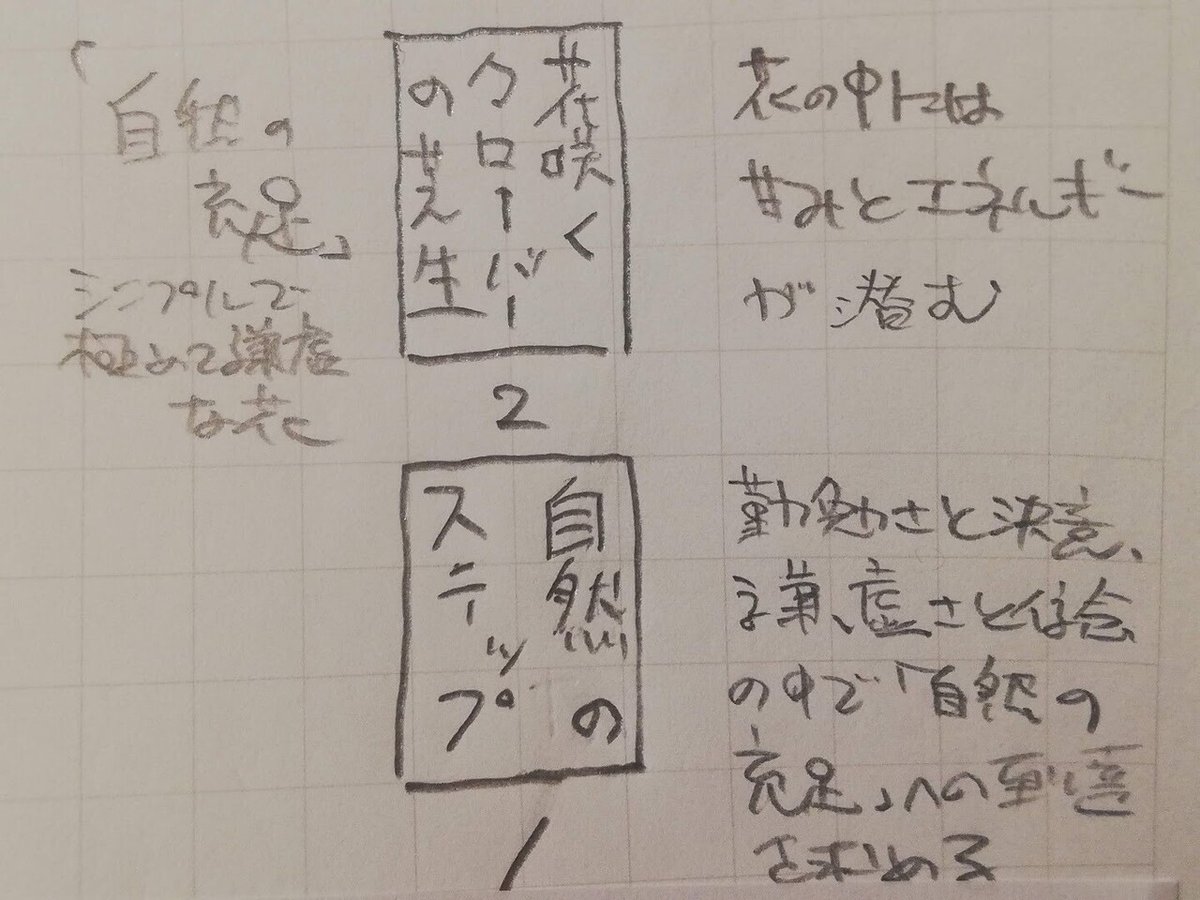 「自然の
充足」
シンプルで
極めて謙虚
な花
花咲く
クローバー
の芝生
2
花の中には
甘みとエネルギー
が潜む
自然の
ステップ
1
勤勉さと決意、
謙虚さと信念
の中で「自然の
充足」への到達
を求める